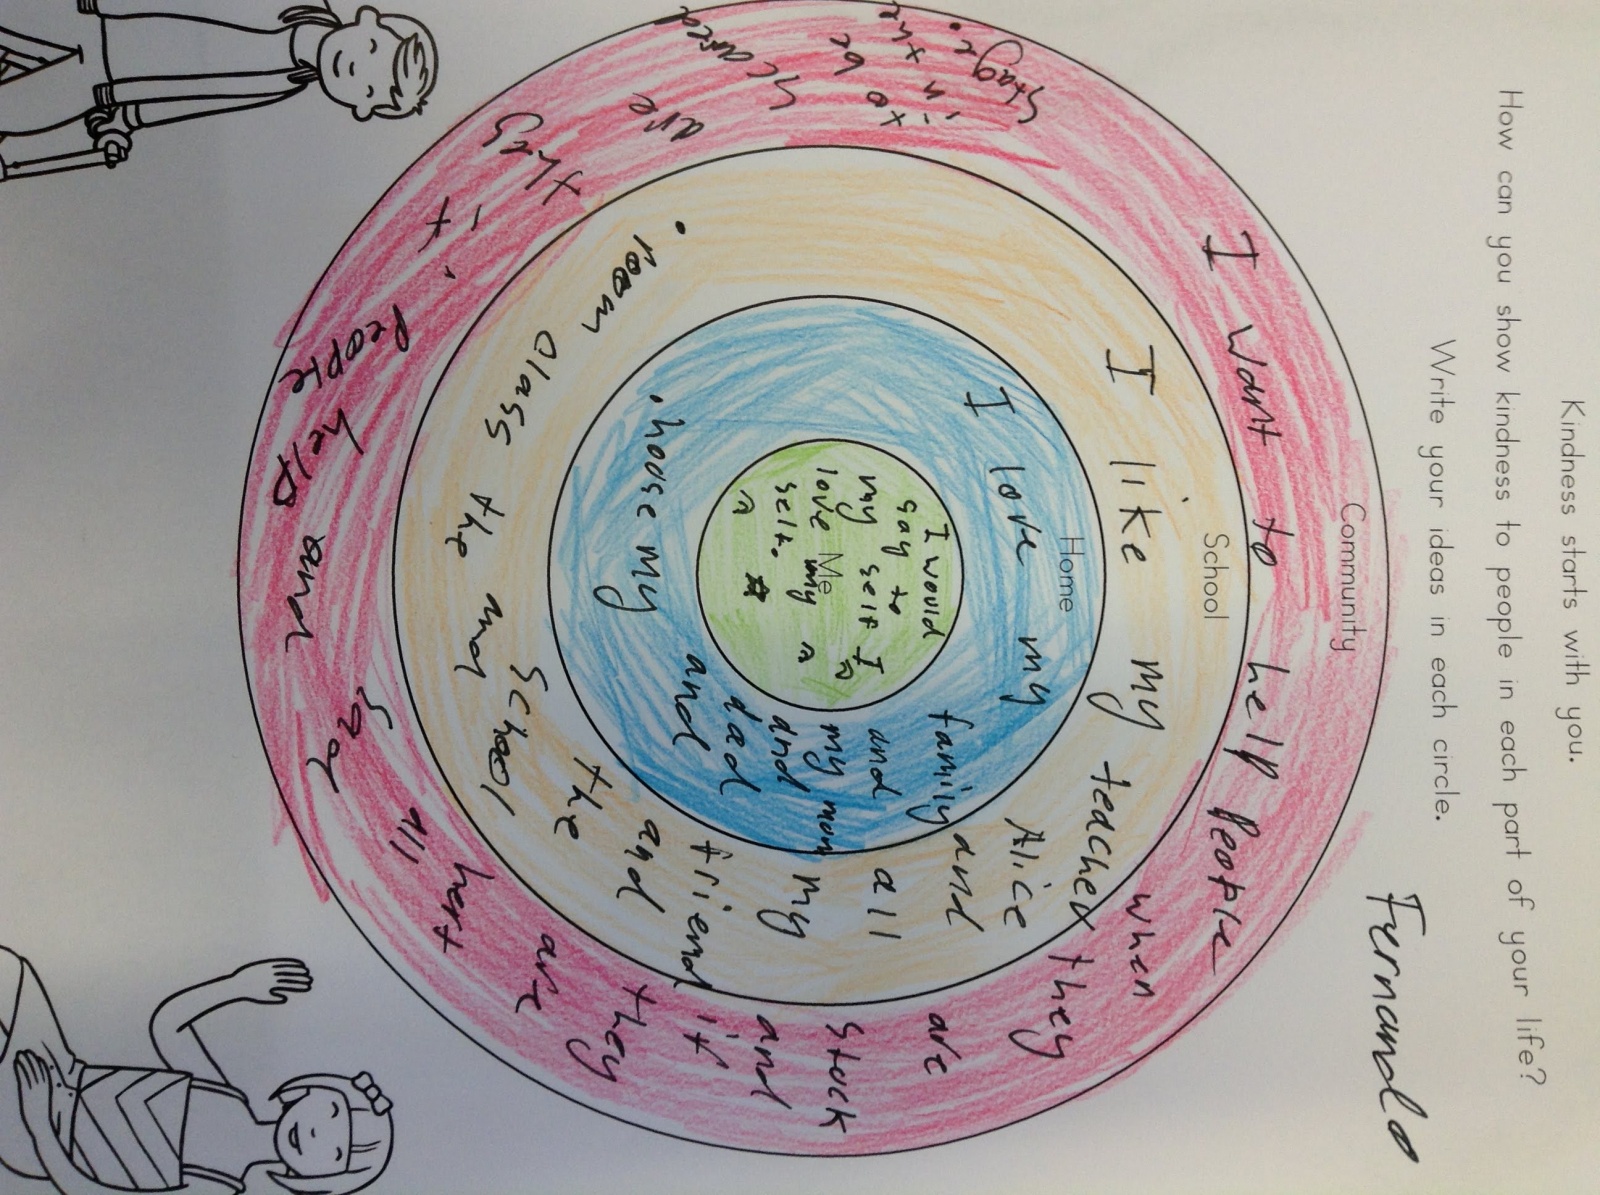 Kindness starts with you.
How can you show kindness to people in each part of your life?
Write your ideas in each circle.
Fernando
Community
I want to help people when they are stuck and if they are hert all say and help people. if they are scared to be in the stage.
School
I like my teacher Alice and all my friend and the school and the class room.
Home
I love my family and and my mom and dad and my hoose.
Me
I would
say to
my self I
love my
self.